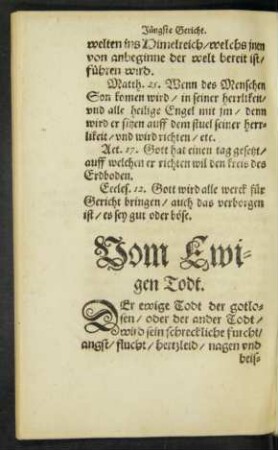 Jüngste Gericht.
welten ins Himelreich/welchs jnen
von anbeginne der welt bereit ist/
führen wird.
Matth. 25. Wenn des Menschen
Son komen wird / in seiner herrliken/
vnd alle heilige Engel mit jm / denn
wird er sitzen auff dem stuel seiner herr-
likeit / vnd wird richten / etc.
Act. 17. Gott hat einen tag gesetzt/
auff welchen er richten wil den kreis des
Erdboden.
Eccles. 12. Gott wird alle werck für
Gericht bringen / auch das verborgen
ist / es sey gut oder böse.
Vom Ewi-
gen Todt.
DEr ewige Todt der gotlo-
sen / oder der ander Todt /
wird sein schreckliche furcht/
angst / flucht / hertzleid / nagen vnd
beis-